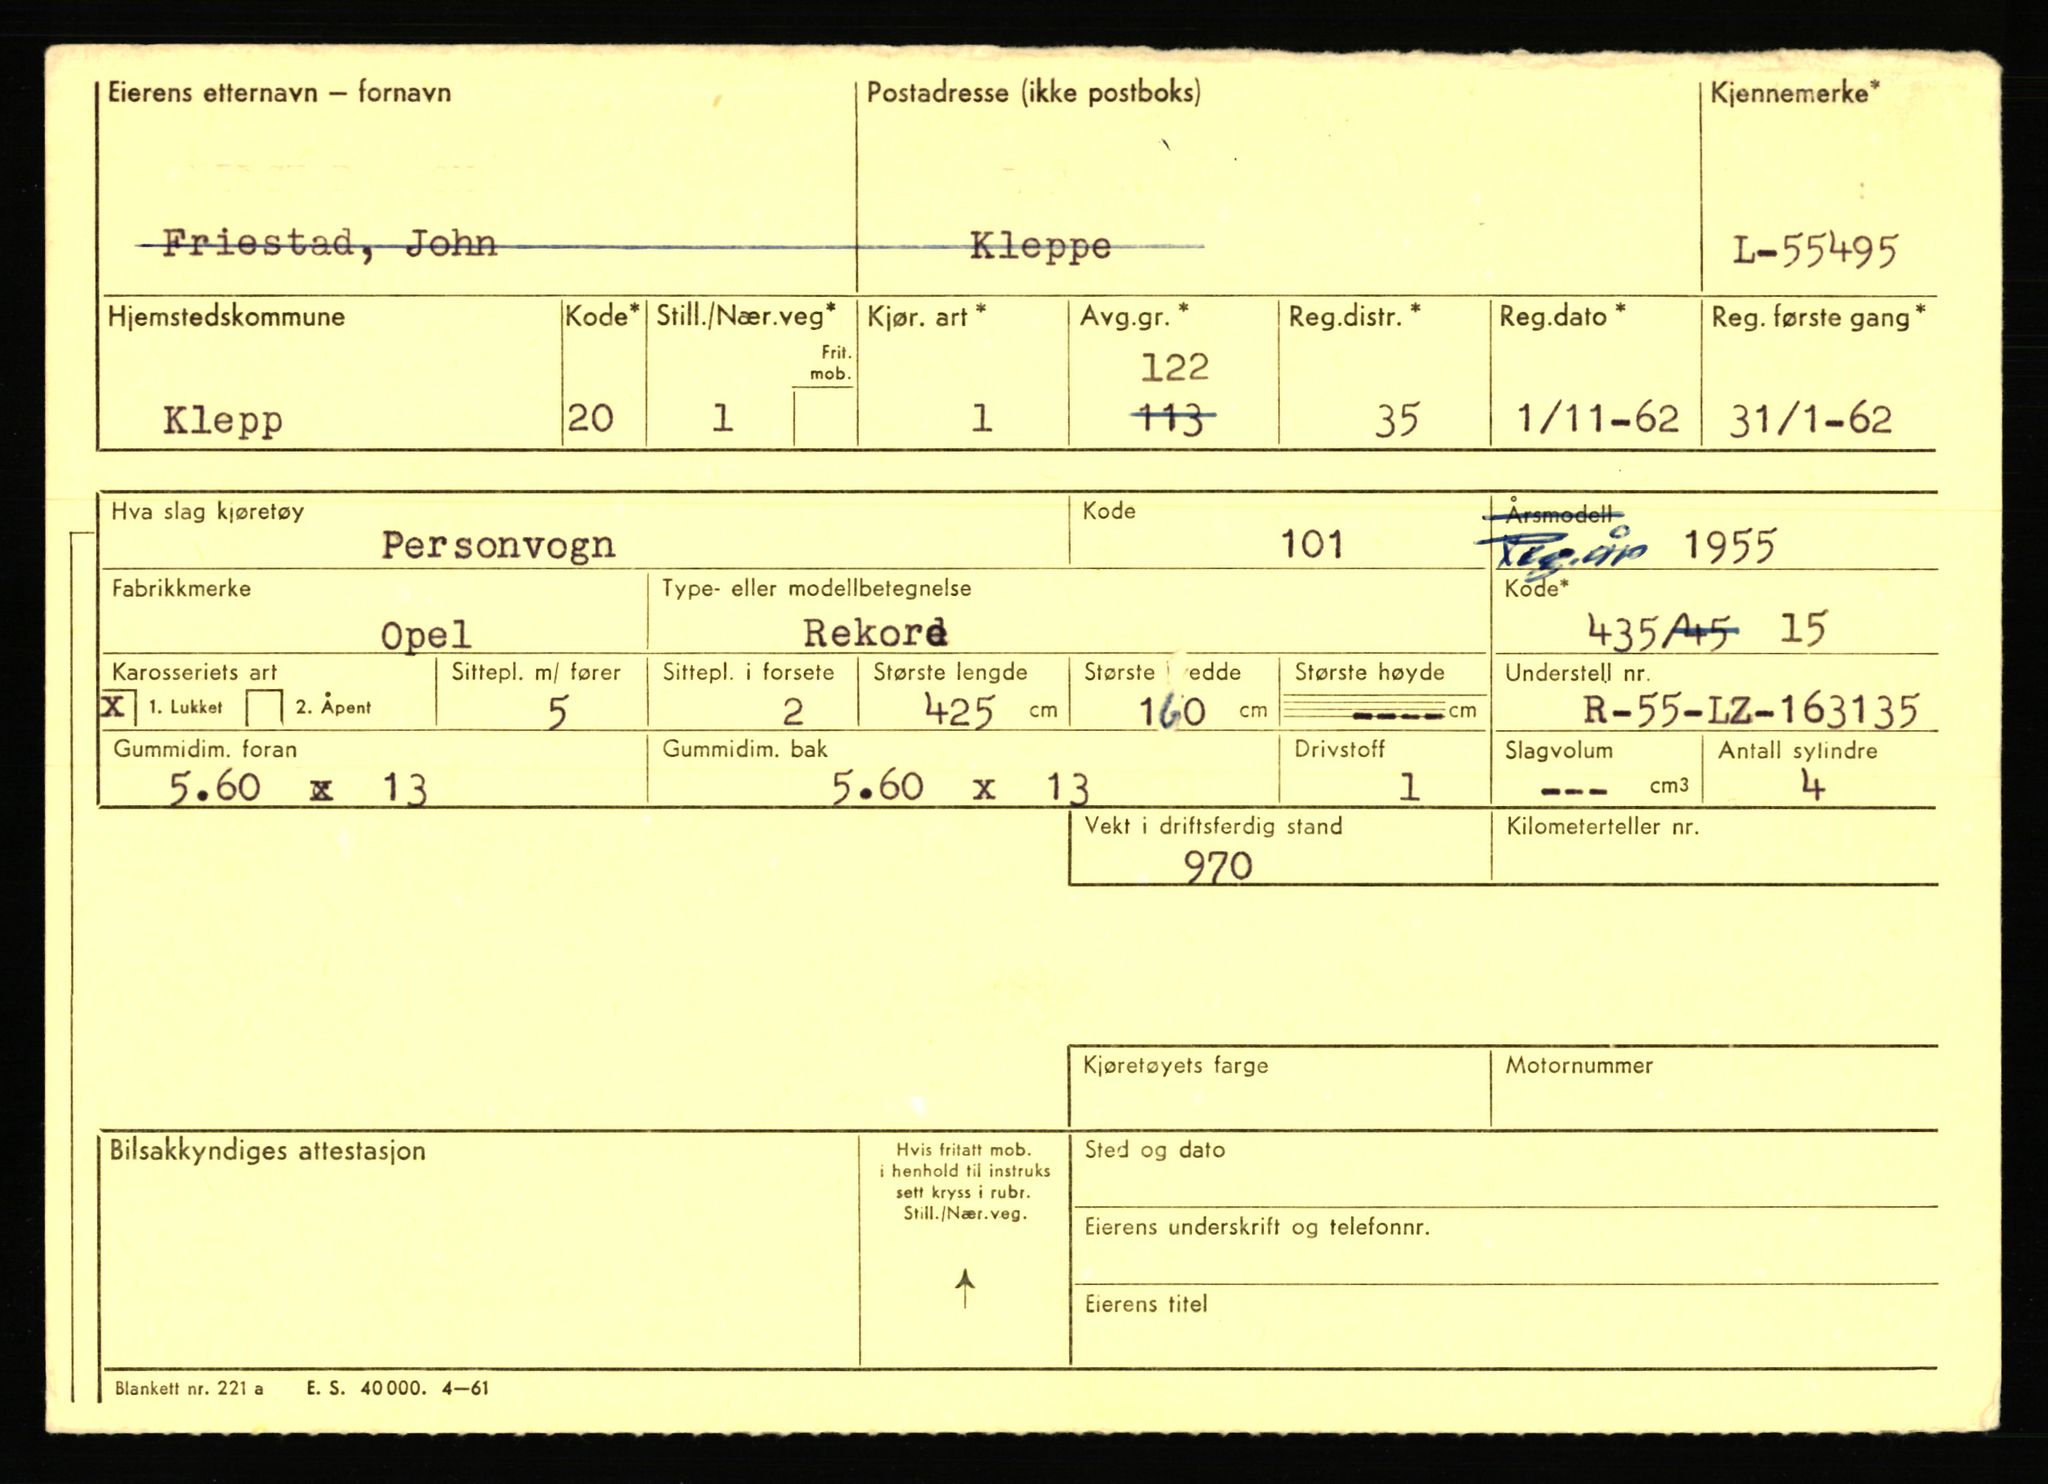 Eierens etternavn – fornavn Postadresse (ikke postboks) Kjennemerke*
Friestad, John Kleppe L-55495
Hjemstedskommune Kode* Still./Nær.veg* Kjør. art* Avg.gr.* Reg.distr.* Reg.dato* Reg. første gang*
Frit. mob. 122
Klepp 20 1 1 113 35 1/11-62 31/1-62
Hva slag kjøretøy Kode Årsmodell
Personvogn 101 Reg.år 1955
Fabrikkmerke Type- eller modellbetegnelse Kode*
Opel Rekord 435/A45 15
Karosseriets art Sittepl. m/ fører Sittepl. i forsete Største lengde Største redde Største høyde Understell nr.
X 1. Lukket 2. Åpent 5 2 425 cm 160 cm ---- cm R-55-LZ-163135
Gummidim. foran Gummidim. bak Drivstoff Slagvolum Antall sylindre
5.60 x 13 5.60 x 13 1 --- cm3 4
Vekt i driftsferdig stand Kilometerteller nr.
970
Kjøretøyets farge Motornummer
Bilsakkyndiges attestasjon
Hvis fritatt mob.
i henhold til instruks
sett kryss i rubr.
Still./Nær.veg.
Sted og dato
Eierens underskrift og telefonnr.
Eierens titel
Blankett nr. 221 a E. S. 40 000. 4–61